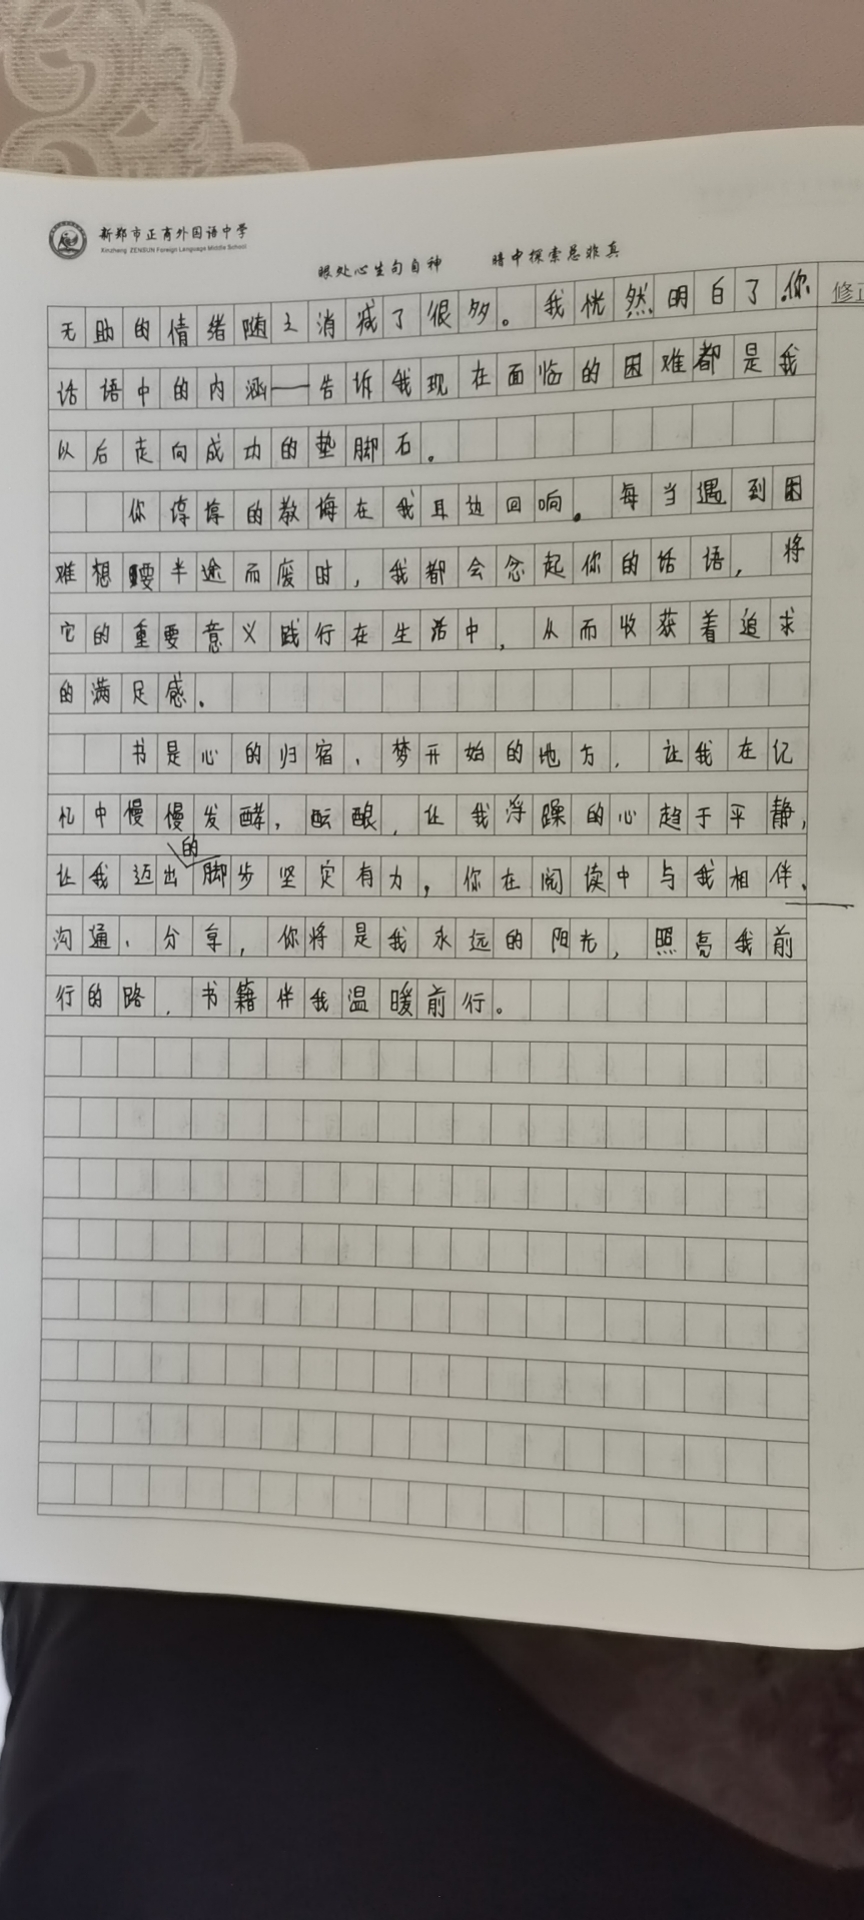 新郑市正商外国语中学
Xinzheng ZENSUN Foreign Language Middle School
眼处心生句自神 暗中探索总非真
修正
无助的情绪随之消减了很多。我恍然明白了，你
话语中的内涵——告诉我现在面临的困难都是我
以后走向成功的垫脚石。
你谆谆的教诲在我耳边回响。每当遇到困
难想要半途而废时，我都会念起你的话语，将
它的重要意义践行在生活中，从而收获着追求
的满足感。
书是心的归宿、梦开始的地方，让我在记
忆中慢慢发酵，酝酿，让我浮躁的心趋于平静，
让我迈出的脚步坚实有力，你在阅读中与我相伴、
沟通、分享，你将是我永远的阳光，照亮我前
行的路，书籍伴我温暖前行。